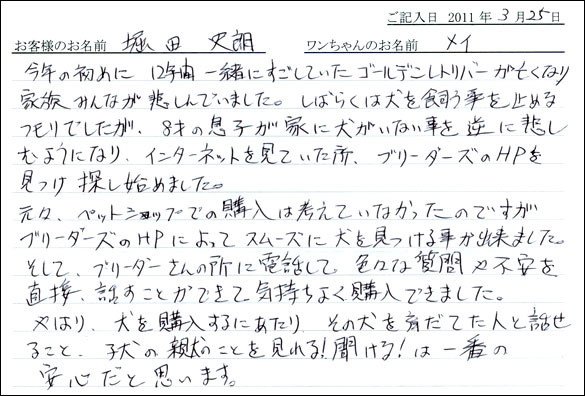 ご記入日 2011 年 3 月 25 日
お客様のお名前 堀田 史朗 ワンちゃんのお名前 メイ
今年の初めに 12年間 一緒にすごしていた ゴールデンレトリバーが亡くなり
家族 みんなが 悲しんでいました。しばらくは犬を飼う事を止める
つモリでしたが、8才の息子が家に犬がいない事を逆に悲し
むようになり、インターネットを見ていた所、ブリーダーズのHPを
見つけ 探し始めました。
元々、ペットショップでの購入は考えていなかったのですが
ブリーダーズのHPによってスムーズに犬を見つける事が出来ました。
そして、ブリーダーさんの所に電話して。色々な質問や不安を
直接、話すことができて気持ちよく購入できました。
やはり、犬を購入するにあたり、その犬を育だてた人と話せ
ること、子犬の親犬のことを見れる!聞ける!は一番の
安心だと思います。